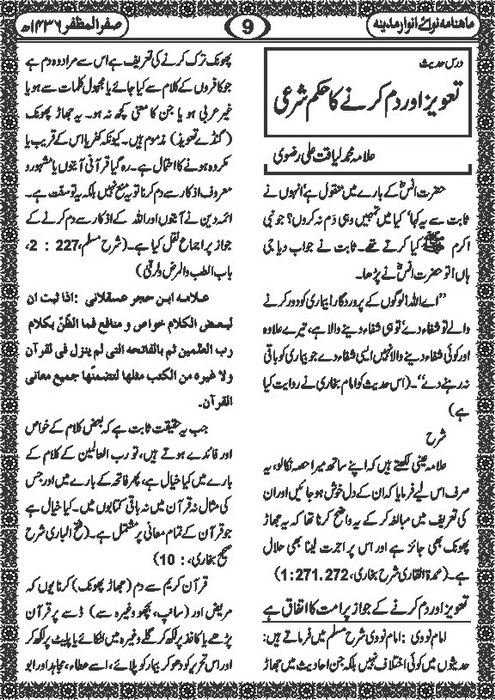 ماہنامہ نوائے انوار مدینہ
9
صفر المظفر ۱۴۳۶ھ
درس حدیث
تعویذ اور دم کرنے کا حکم شرعی
علامہ محمد لیاقت علی رضوی
حضرت انسؓ کے بارے میں منقول ہے انہوں نے
ثابت سے یہ کہا کیا میں تمہیں وہی دَم نہ کروں؟ جو نبی
اکرم ﷺ کیا کرتے تھے۔ ثابت نے جواب دیا جی
ہاں! تو حضرت انسؓ نے پڑھا۔
’’اے اللہ لوگوں کے پروردگار! بیماری کو دور کرنے
والے تو شفاء دے تو ہی شفاء دینے والا ہے، تیرے علاوہ
اور کوئی شفاء دینے والا نہیں ایسی شفاء دے جو بیماری کو باقی
نہ رہنے دے‘‘۔ (اس حدیث کو امام بخاری نے روایت کیا
ہے)
شرح
علامہ عینی لکھتے ہیں کہ اپنے ساتھ میرا حصہ نکالو، یہ
صرف اس لیے فرمایا کہ ان کے دل خوش ہو جائیں اور ان
کی تعریف میں مبالغہ کر کے یہ واضح کرنا تھا کہ یہ جھاڑ
پھونک بھی جائز ہے اور اس پر اجرت لینا بھی حلال
ہے۔ (عمدۃ القاری شرح بخاری، 1:271.272)
تعویذ اور دم کرنے کے جواز پر امت کا اتفاق ہے
امام نووی: امام نووی شرح مسلم میں فرماتے ہیں:
حدیثوں میں کوئی اختلاف نہیں بلکہ جن احادیث میں جھاڑ
پھونک ترک کرنے کی تعریف ہے اس سے مراد وہ دم ہے
جو کافروں کے کلام سے کیا جائے یا مجہول کلمات سے ہو یا
غیر عربی ہو یا جن کا معنی کچھ نہ ہو۔ یہ جھاڑ پھونک
(گنڈے تعویذ) مذموم ہیں۔ کیونکہ کفر یا اس کے قریب یا
مکروہ ہونے کا احتمال ہے۔ رہ گیا قرآنی آیتوں یا مشہور و
معروف اذکار سے دم کرنا تو یہ منع نہیں بلکہ یہ تو سنت ہے۔
ائمہ دین نے آیتوں اور اللہ کے اذکار سے دم کرنے کے
جواز پر اجماع نقل کیا ہے۔ (شرح مسلم، 227، : 2،
باب الطب والمرض والرقی)
علامہ ابن حجر عسقلانی: اذا ثبت ان
لبعض الکلام خواص و منافع فما الظّنّ بکلام
رب العٰلمین ثم بالفاتحه التی لم ینزل فی القرآن
ولا غیره من الکتب مثلها لتضمنها جمیع معانی
القرآن۔
جب یہ حقیقت ثابت ہے کہ بعض کلام کے خواص
اور فائدے ہوتے ہیں، تو رب العالمین کے کلام کے
بارے میں کیا خیال ہے، پھر فاتحہ کے بارے میں اور جس
کی مثال نہ قرآن میں نہ باقی کتابوں میں۔ کیا خیال ہے
جو قرآن کے تمام معانی پر مشتمل ہے۔ (فتح الباری شرح
صحیح بخاری، : 10)
قرآن کریم سے دم (جھاڑ پھونک) کرنا یوں کہ
مریض اور (سانپ، بچھو وغیرہ سے) ڈسے پر قرآن
پڑھے یا کاغذ پر لکھ کر گلے وغیرہ میں لٹکائے یا پلیٹ پر لکھ کر
اور اس تحریر کو دھو کر بیمار کو پلائے، اسے عطاء، مجاہد اور ابو